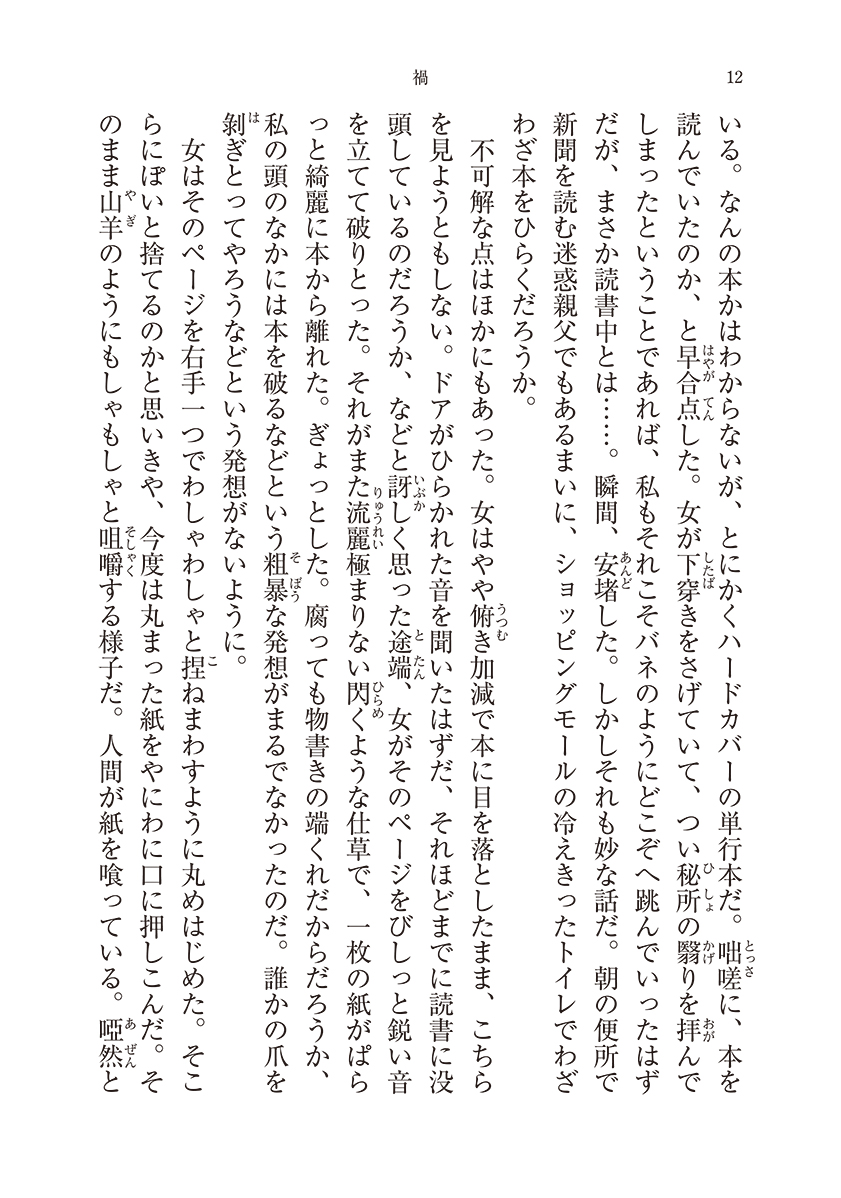 12
禍
いる。なんの本かはわからないが、とにかくハードカバーの単行本だ。咄嗟に、本を
読んでいたのか、と早合点した。女が下穿きをさげていて、つい秘所の翳りを拝んで
しまったということであれば、私もそれこそバネのようにどこぞへ跳んでいったはず
だが、まさか読書中とは……。瞬間、安堵した。しかしそれも妙な話だ。朝の便所で
新聞を読む迷惑親父でもあるまいに、ショッピングモールの冷えきったトイレでわざ
わざ本をひらくだろうか。
不可解な点はほかにもあった。女はやや俯き加減で本に目を落としたまま、こちら
を見ようともしない。ドアがひらかれた音を聞いたはずだ、それほどまでに読書に没
頭しているのだろうか、などと訝しく思った途端、女がそのページをびしっと鋭い音
を立てて破りとった。それがまた流麗極まりない閃くような仕草で、一枚の紙がぱら
っと綺麗に本から離れた。ぎょっとした。腐っても物書きの端くれだからだろうか、
私の頭のなかには本を破るなどという粗暴な発想がまるでなかったのだ。誰かの爪を
剝ぎとってやろうなどという発想がないように。
女はそのページを右手一つでわしゃわしゃと捏ねまわすように丸めはじめた。そこ
らにぽいと捨てるのかと思いきや、今度は丸まった紙をやにわに口に押しこんだ。そ
のまま山羊のようにもしゃもしゃと咀嚼する様子だ。人間が紙を喰っている。啞然と